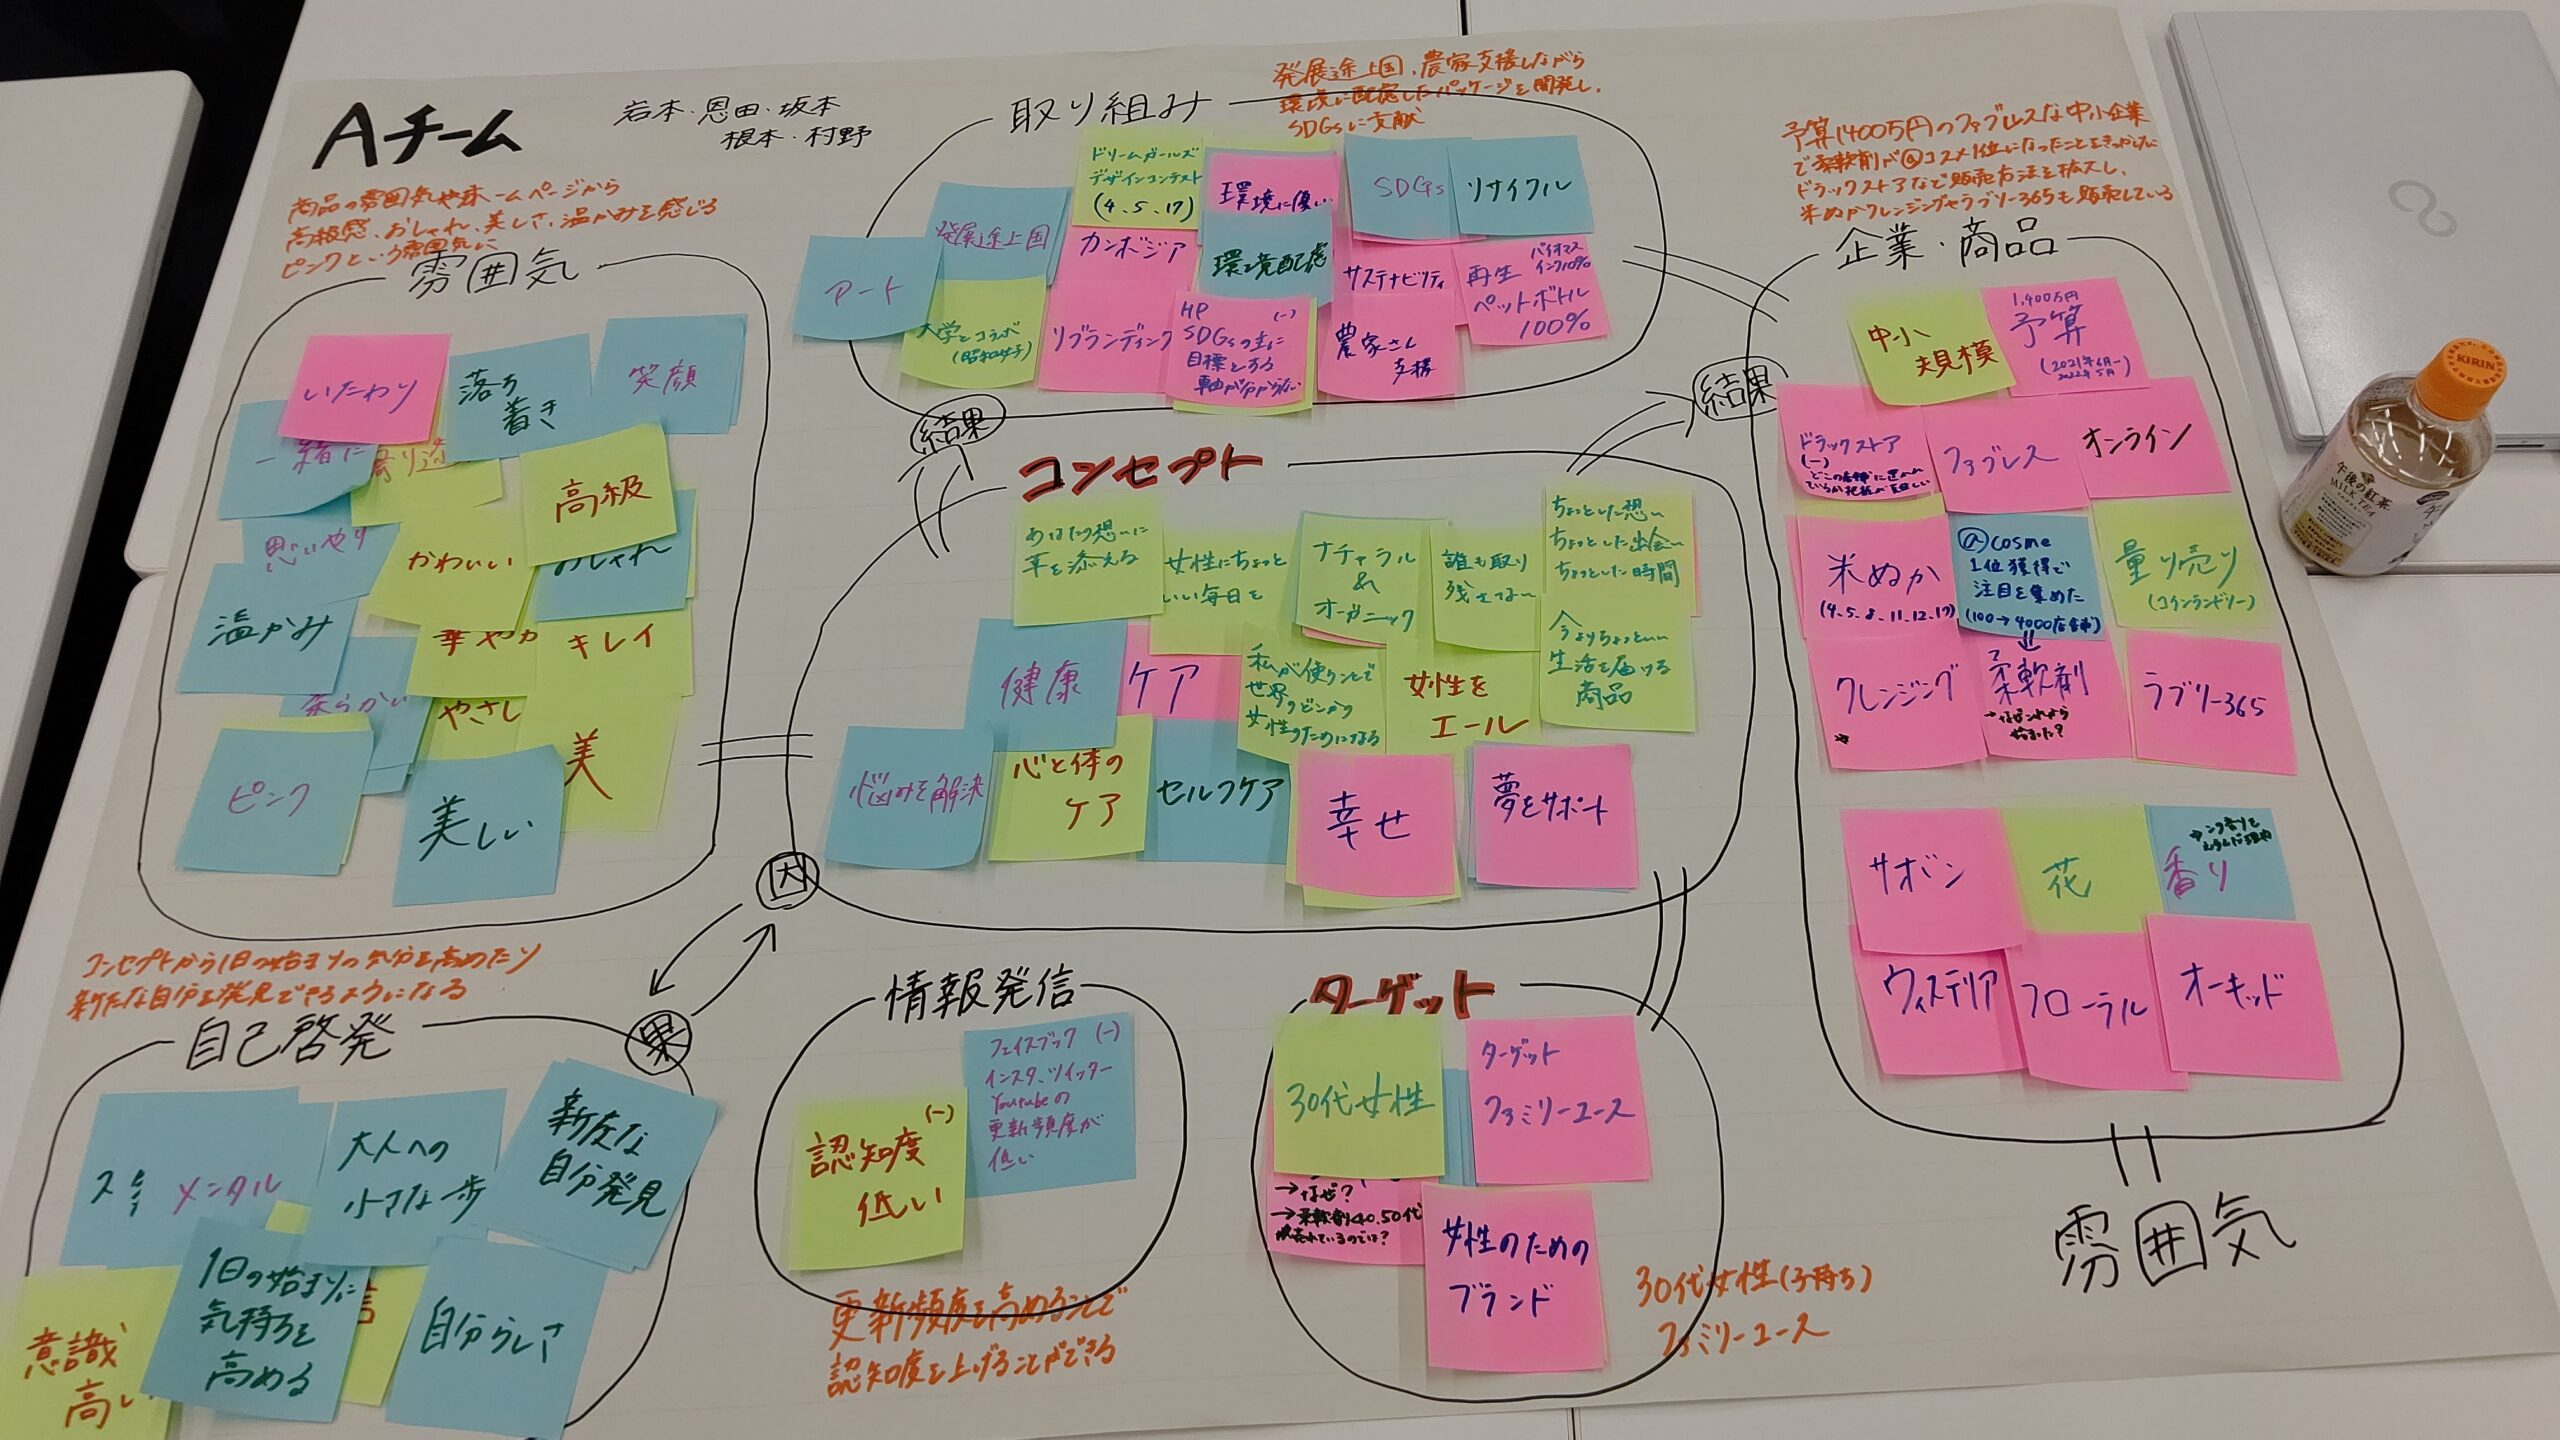 Aチーム
岩本・恩田・坂本
根本・村野
商品の雰囲気やホームページから
高級感、おしゃれ、美しさ、温かみを感じる
ピンクという雰囲気に
雰囲気
いたわり
落ち
着き
笑顔
一緒に
寄り添
高級
思いやり
かわいい
おしゃれ
温かみ
華やか
キレイ
柔らかい
やさし
美
ピンク
美しい
取り組み
発展途上国、農家支援しながら
環境に配慮したパッケージを開発し、
SDGsに貢献
ドリームガールズ
デザインコンテスト
(4、5、17)
環境に優しい
SDGs
リサイクル
発展途上国
カンボジア
環境配慮
サステナビリティ
バイオマス
インク10%
再生
ペットボトル
100%
アート
大学とコラボ
(昭和女子)
リブランディング
HP (-)
SDGsの主に
目標とする
軸が分からない
農家さん
支援
結果
結果
コンセプト
あなたの想いに
華を添える
女性にちょっと
いい毎日を
ナチュラル
&
オーガニック
誰も取り
残さない
ちょっとした想い
ちょっとした出会い
ちょっとした時間
健康
ケア
私が使うことで
世界のどこかの
女性のためになる
女性を
エール
今よりちょっといい
生活を届ける
商品
悩みを解決
心と体の
ケア
セルフケア
幸せ
夢をサポート
因
果
予算1400万円のファブレスな中小企業
で柔軟剤が@コスメ1位になったことをきっかけに
ドラックストアなど販売方法を拡大し、
米ぬかクレンジングやラブリー365も販売している
企業・商品
中小
規模
1,400万円
予算
(2021年6月~
2022年5月)
ドラックストア
(-)
ファブレス
オンライン
米ぬか
(4、5、8、11、12、17)
@cosme
1位獲得で
注目を集めた
(100→4000店舗)
量り売り
(コインランドリー)
クレンジング
柔軟剤
→なぜこれから
始めた?
ラブリー365
サボン
花
香り
ウィステリア
フローラル
オーキッド
雰囲気
コンセプトから1日の始まりの気分を高めたり
新たな自分を発見できるようになる
自己啓発
メンタル
大人への
小さな一歩
新たな
自分発見
意識
高い
1日の始まりに
気持ちを
高める
自分らしさ
情報発信
認知度 (-)
低い
フェイスブック (-)
インスタ、ツイッター
Youtubeの
更新頻度が
低い
更新頻度を高めることで
認知度を上げることができる
ターゲット
30代女性
ターゲット
ファミリーユース
→なぜ?
→柔軟剤40.50代
売れているのでは?
女性のための
ブランド
30代女性(子持ち)
ファミリーユース
KIRIN
午後の紅茶
MILK TEA